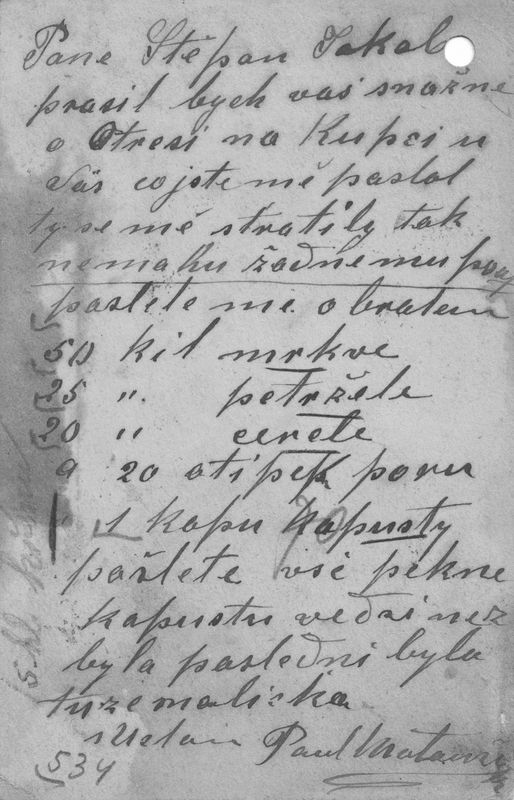 Pane Štěpan Jakab
prasil bych vas snažně
o Otresi na Kupci u
Vás cojste mě paslal
ty se mě stratily tak
nemaku žadnemu
pašlete me obratem
50 kil mrkve
25 " petržele
20 " cerele
a 20 otipek poru
1 kapu kapusty
pašlete vše pěkne
kapustu vedši než
byla paslední byla
tuze malička
Paul
534